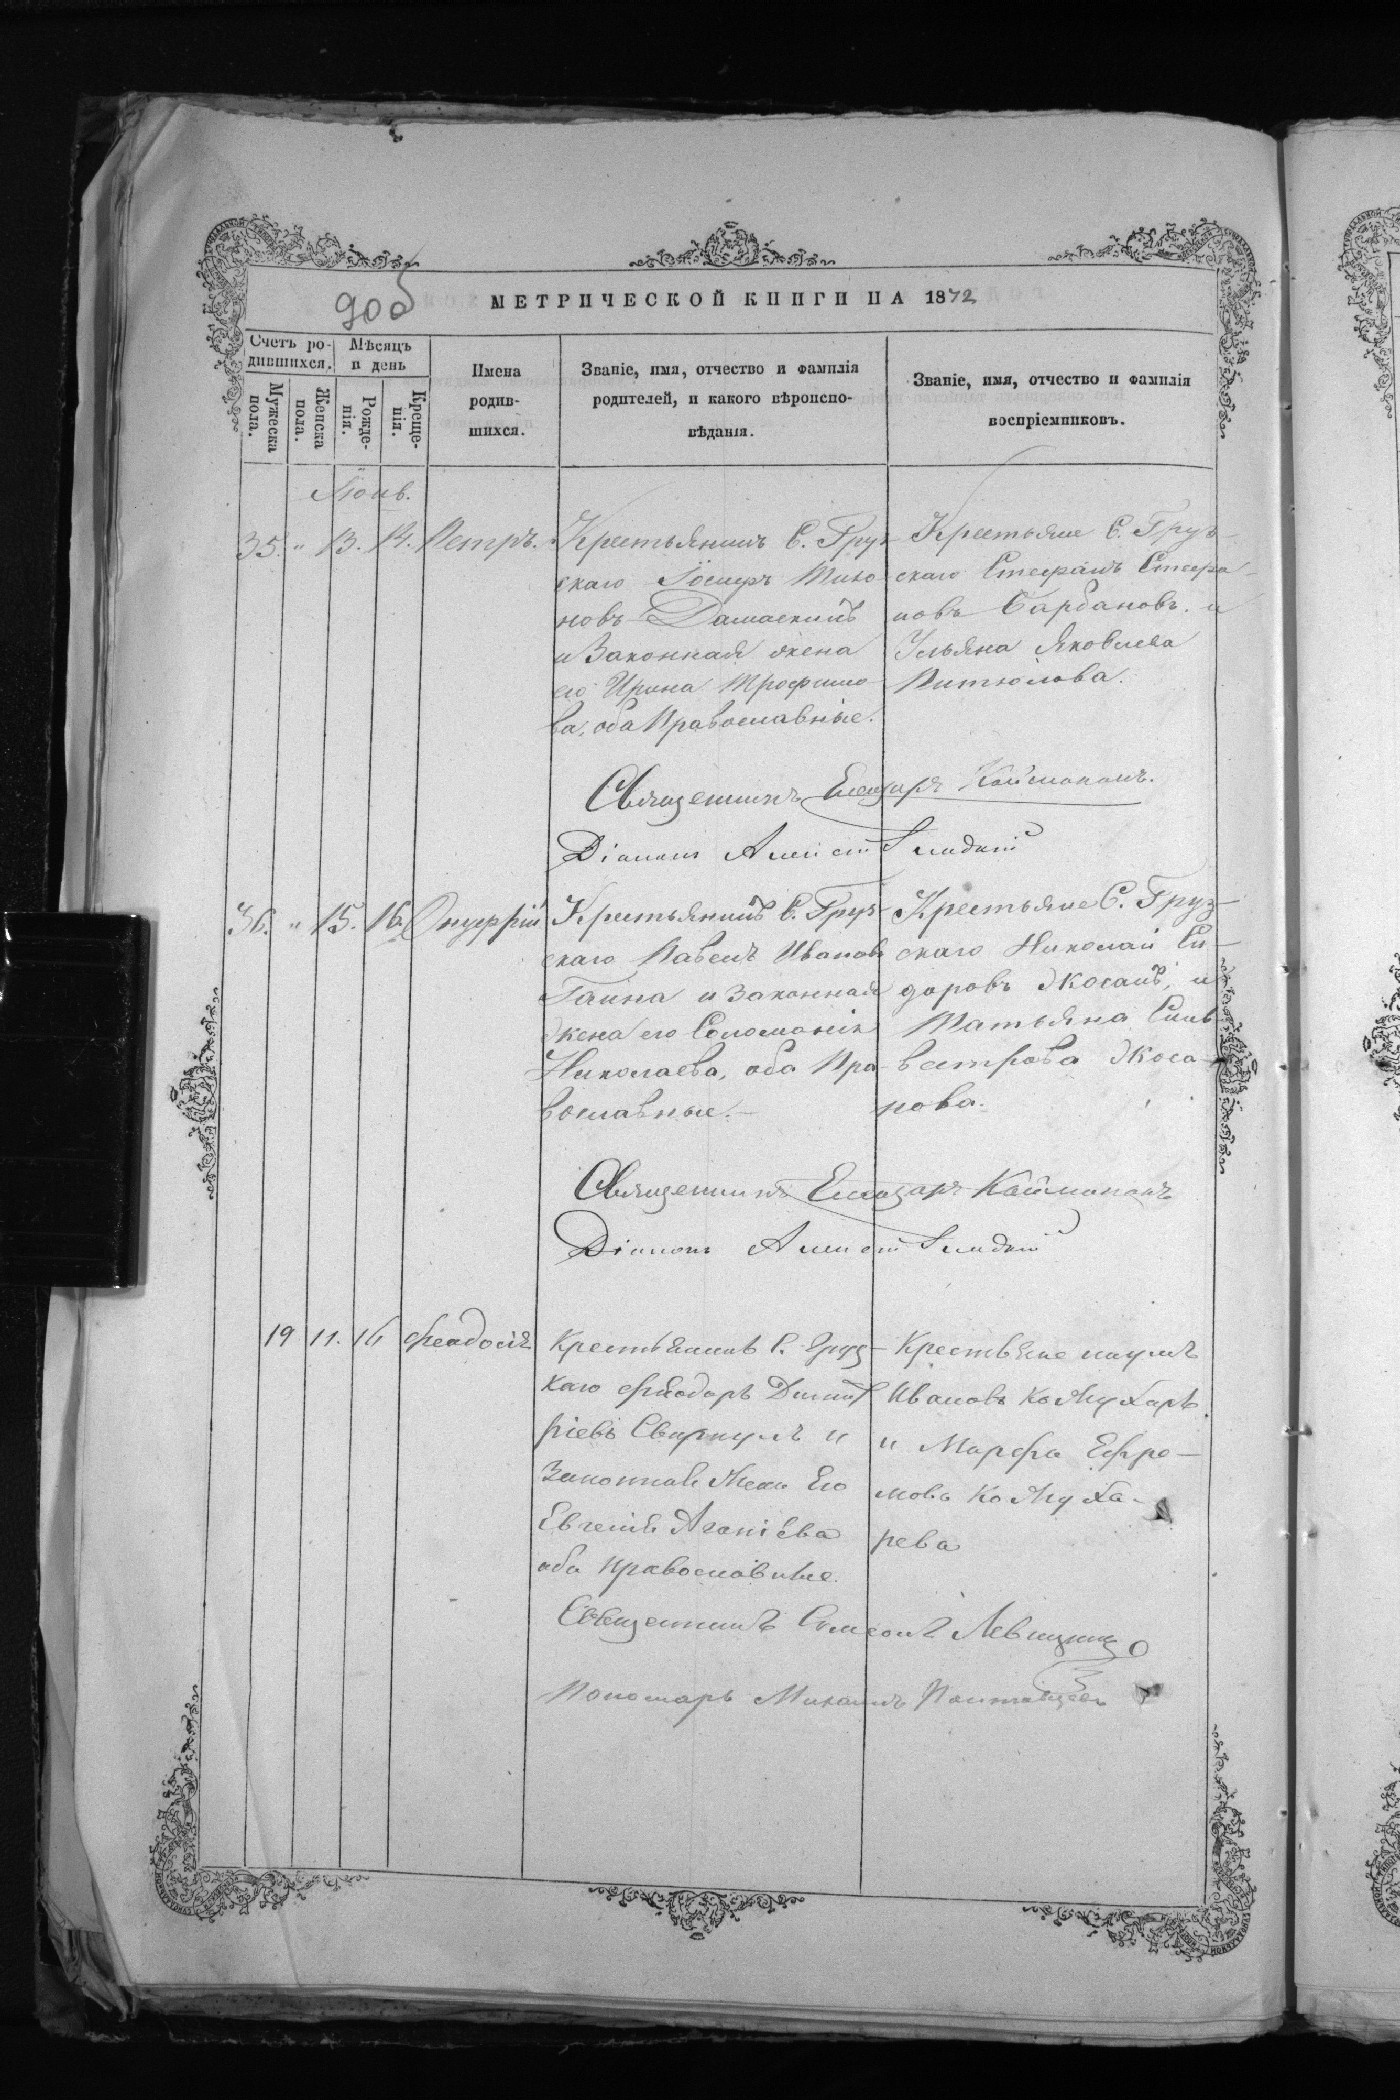 90об
МЕТРИЧЕСКОЙ КНИГИ НА 1872
Счетъ ро-
дившихся.
Мѣсяцъ
и день
Мужеска
пола.
Женска
пола.
Рожде-
нія.
Креще-
нія.
Имена
родив-
шихся.
Званіе, имя, отчество и фамилія
родителей, и какого вѣроиспо-
вѣданія.
Званіе, имя, отчество и фамилія
воспріемниковъ.
Іюнь.
35. " 13. 14. Петръ.
Крестьянинъ С. Груз-
скаго Іосифъ Тихо
новъ Дамаскинъ
и Законная жена
его Ирина Трофимо-
ва, оба Православные.
Крестьяне С. Груз-
скаго Стефанъ Стефа-
новъ Барбановъ. и
Ульяна Яковлева
Питюлова.
Священникъ Елеазаръ Каймаканъ.
Діаконъ Алексѣй
36. " 15. 16. Онуфрій
Крестьянинъ С. Груз-
скаго Павелъ Ивановъ
Гаина и Законная
жена его Соломонія
Николаева, оба Пра-
вославные.
Крестьяне С. Груз-
скаго Николай Си-
доровъ Жосанъ, и
Татьяна Силь-
вестрова Жоса-
нова.
Священникъ Елеазаръ Каймаканъ
Діаконъ Алексѣй
19 11. 16 Феодосія
Крестьянинъ С. Груз-
каго Феодоръ Димит
ріевъ Свиркулъ и
Законная Жена Его
Евгенія Агапіева
оба православные.
Крестьяне наумъ
Ивановъ Кожухарь.
и Марфа Ефре-
мова Кожуха-
рева
Священникъ Симеонъ Левицкій
Пономарь Михаилъ